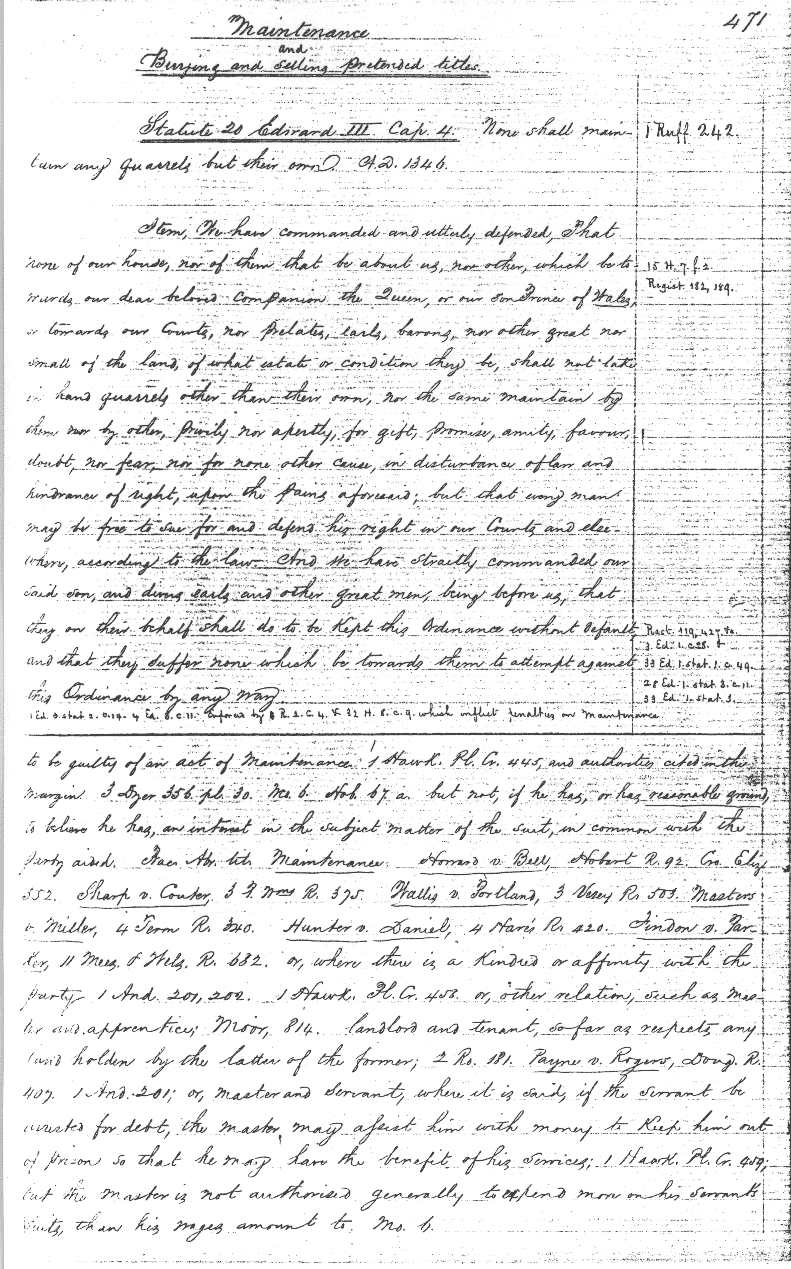 471
Maintenance
and
Buying and selling pretended titles.
Statute 20 Edward III Cap. 4. None shall main-
tain any quarrels but their own. A.D. 1346.
1 Ruff. 242.
Item, We have commanded and utterly defended, That
none of our house, nor of them that be about us, nor other, which be to-
wards our dear beloved Companion the Queen, or our son Prince of Wales,
or towards our Courts, nor Prelates, earls, barons, nor other great nor
small of the land, of what estate or condition they be, shall not take
in hand quarrels other than their own, nor the same maintain by
them nor by other, privily nor apertly, for gift, promise, amity, favour,
doubt, nor fear, nor for none other cause, in disturbance of law and
hindrance of right, upon the pains aforesaid; but that every man
may be free to sue for and defend his right in our Courts and else-
where, according to the law. And We have straitly commanded our
said son, and divers earls and other great men, being before us, that
they on their behalf shall do to be kept this Ordinance without default,
and that they suffer none which be towards them to attempt against
this Ordinance by any way.
15 H. 7. f. 2.
Regist. 182, 189.
Rast. 119, 427. &c.
3. Ed. 1. c. 28. &
33 Ed. 1. stat. 1. c. 49.
28 Ed. 1. stat. 3. c. 11.
33 Ed. 1. stat. 3.
1 Ed. 3. stat 2. c. 14. 4 Ed. 3. c. 11. Enforced by 1 R. 2. C. 4. & 32 H. 8. c. 9. which inflict penalties on Maintenance
to be guilty of an act of Maintenance. 1 Hawk. Pl. Cr. 445, and authorities cited in the
margin. 3 Dyer 356. pl. 30. Mo. 6. Hob. 67. a. but not, if he has, or has reasonable ground,
to believe he has, an interest in the subject matter of the suit, in common with the
party aided. Bac. Abr. tit. Maintenance. Howard v. Bell, Hobart R. 92. Cro. Eliz.
552. Sharp v. Couter, 3 P. Wms R. 375. Wallis v. Portland, 3 Vesey R. 503. Masters
v. Miller, 4 Term R. 340. Hunter v. Daniel, 4 Hare's R. 420. Findon v. Par-
ker, 11 Mees. & Wels. R. 682. or, where there is a kindred or affinity with the
party 1 And. 201, 202. 1 Hawk. Pl. Cr. 453. or, other relation, such as mas-
ter and apprentice; Moor, 814. landlord and tenant, so far as respects any
land holden by the latter of the former; 2 Ro. 181. Payne v. Rogers, Doug. R.
407. 1 And. 201; or, master and servant, where it is said, if the servant be
arrested for debt, the master may assist him with money to keep him out
of prison so that he may have the benefit of his services; 1 Hawk. Pl. Cr. 459;
but the master is not authorised generally to expend more on his servants
suits, than his wages amount to. Mo. 6.